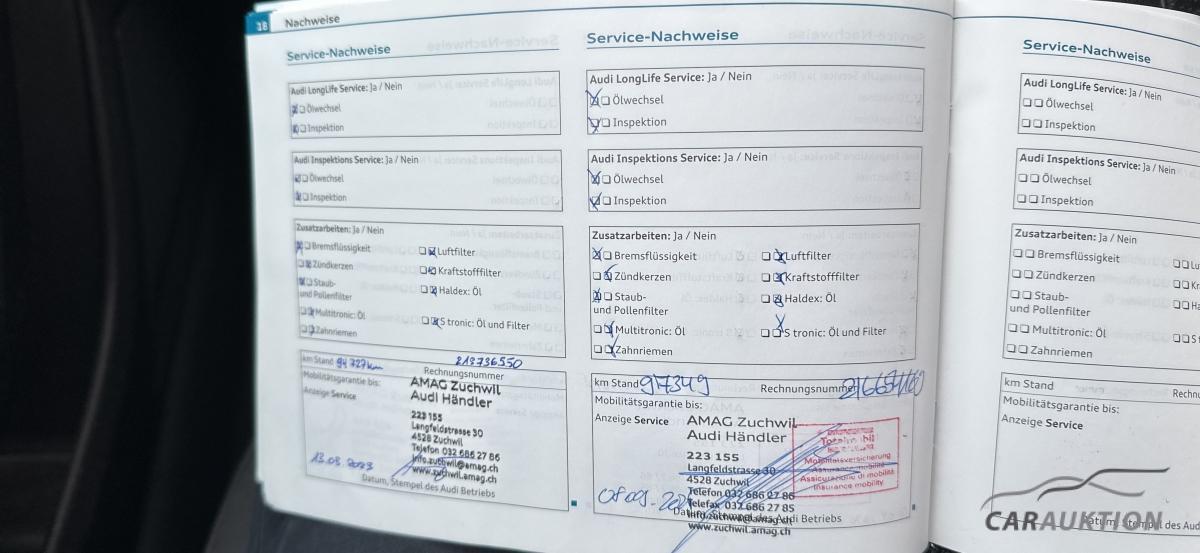 18 Nachweise
Service-Nachweise
Audi LongLife Service: Ja / Nein
Ölwechsel
Inspektion
Audi Inspektions Service: Ja / Nein
Ölwechsel
Inspektion
Zusatzarbeiten: Ja / Nein
Bremsflüssigkeit Luftfilter
Zündkerzen Kraftstofffilter
Staub- Haldex: Öl
und Pollenfilter
Multitronic: Öl S tronic: Öl und Filter
Zahnriemen
km Stand 94 727km 213736550
Rechnungsnummer
Mobilitätsgarantie bis:
Anzeige Service
AMAG Zuchwil
Audi Händler
223 155
Langfeldstrasse 30
4528 Zuchwil
Telefon 032 686 27 86
info.zuchwil@amag.ch
www.zuchwil.amag.ch
13.03.2023
Datum, Stempel des Audi Betriebs
Service-Nachweise
Audi LongLife Service: Ja / Nein
Ölwechsel
Inspektion
Audi Inspektions Service: Ja / Nein
Ölwechsel
Inspektion
Zusatzarbeiten: Ja / Nein
Bremsflüssigkeit Luftfilter
Zündkerzen Kraftstofffilter
Staub- Haldex: Öl
und Pollenfilter
Multitronic: Öl S tronic: Öl und Filter
Zahnriemen
km Stand 97349 Rechnungsnummer
Mobilitätsgarantie bis:
Anzeige Service
AMAG Zuchwil
Audi Händler
223 155
Langfeldstrasse 30
4528 Zuchwil
Telefon 032 686 27 86
Telefax 032 686 27 85
info.zuchwil@amag.ch
www.zuchwil.amag.ch
Stempel des Audi Betriebs
Totalmobil
Mobilitätsversicherung
Assurance mobilité
Assicurazione di mobilità
Insurance mobility
Service-Nachweise
Audi LongLife Service: Ja / Nein
Ölwechsel
Inspektion
Audi Inspektions Service: Ja / Nein
Ölwechsel
Inspektion
Zusatzarbeiten: Ja / Nein
Bremsflüssigkeit Lu
Zündkerzen Kr
Staub- Ha
und Pollenfilter
Multitronic: Öl S t
Zahnriemen
km Stand Rechnu
Mobilitätsgarantie bis:
Anzeige Service
Datum, Stempel des Aud
CARAUKTION